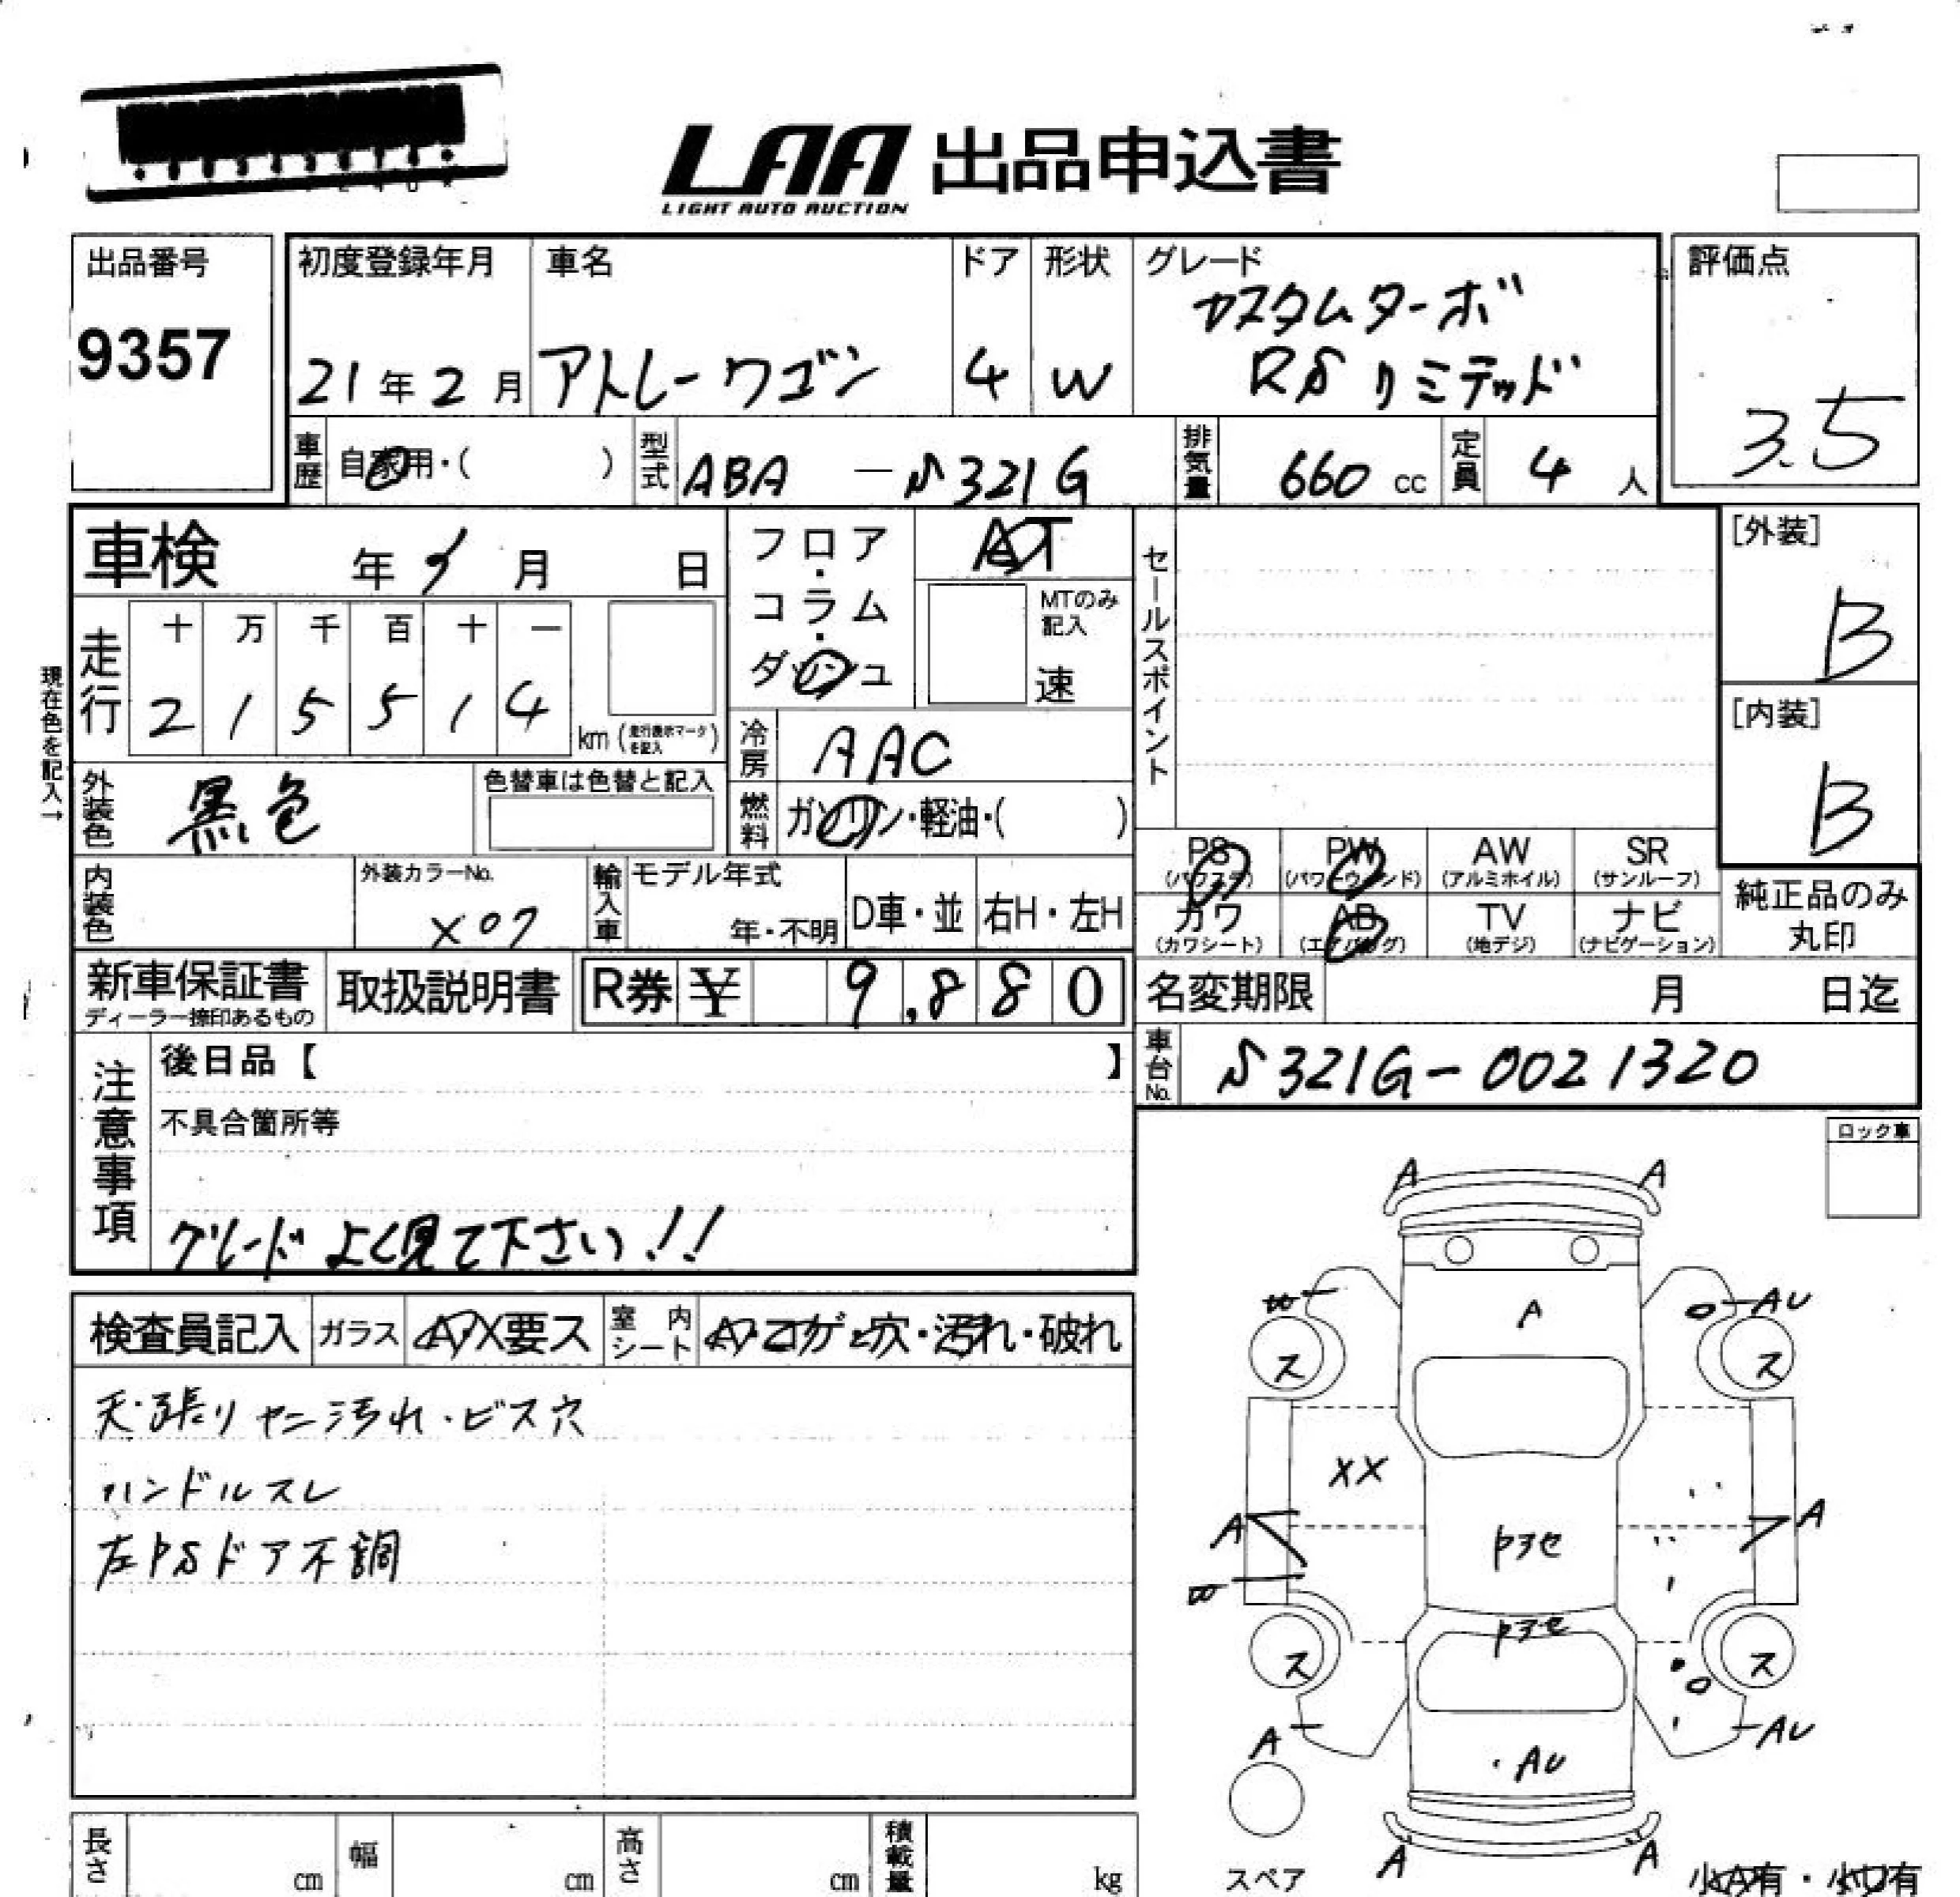 LAA 出品申込書
LIGHT AUTO AUCTION
出品番号
9357
初度登録年月
21年2月
車名
アトレーワゴン
ドア
4
形状
W
グレード
カスタムターボ
RSリミテッド
評価点
3.5
車歴
自家用・( )
型式
ABA - S321G
排気量
660 cc
定員
4 人
車検
年 月 日
フロア・コラム・ダッシュ
AT
MTのみ記入
速
セールスポイント
[外装]
B
[内装]
B
現在色を記入→
走行
十 万 千 百 十 一
2 1 5 5 1 4
km (走行表示マークを記入)
冷房
AAC
外装色
黒色
色替車は色替と記入
燃料
ガソリン・軽油・( )
内装色
外装カラーNo.
X07
輸入車
モデル年式
年・不明
D車・並
右H・左H
PS
(パワステ)
PW
(パワーウィンド)
AW
(アルミホイル)
SR
(サンルーフ)
カワ
(カワシート)
AB
(エアバッグ)
TV
(地デジ)
ナビ
(ナビゲーション)
純正品のみ
丸印
新車保証書
ディーラー捺印あるもの
取扱説明書
R券 ¥ 9,880
名変期限
月 日迄
車台No.
S321G-0021320
注意事項
後日品【 】
不具合箇所等
グレードよく見て下さい!!
ロック車
検査員記入
ガラス
A・X要ス
室内シート
A・コゲ・穴・汚れ・破れ
天張りヤニ汚れ・ビス穴
ハンドルスレ
左PSドア不調
A A
W AU
A
ス ス
XX
A A
トアセ
W
トアセ
ス ス
A AU
・AU
A A
スペア
小A有・小U有
長さ cm
幅 cm
高さ cm
積載量 kg